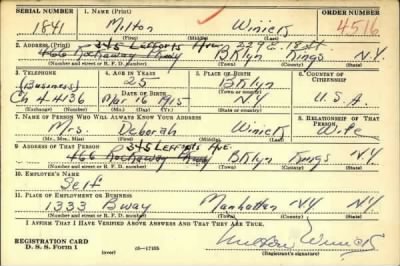 SERIAL NUMBER 1. NAME (Print) ORDER NUMBER
1841 Milton Winick 4516
(First) (Middle) (Last)
2. ADDRESS (Print) 345 Lefferts Ave. 229 E. 18 St
466 Rockaway Pkwy BKlyn Kings N.Y.
(Number and street or R. F. D. number) (Town) (County) (State)
3. TELEPHONE 4. AGE IN YEARS 5. PLACE OF BIRTH 6. COUNTRY OF
CITIZENSHIP
(Business) 25 BKlyn
DATE OF BIRTH (Town or county)
Ch 4-4136 Mar 16 1915 N.Y. U.S.A.
(Exchange) (Number) (Mo.) (Day) (Yr.) (State or country)
7. NAME OF PERSON WHO WILL ALWAYS KNOW YOUR ADDRESS 8. RELATIONSHIP OF THAT
PERSON
Mrs. Deborah Winick Wife
(Mr., Mrs., Miss) (First) (Middle) (Last)
9. ADDRESS OF THAT PERSON 345 Lefferts Ave.
466 Rockaway Pkwy BKlyn Kings N.Y.
(Number and street or R. F. D. number) (Town) (County) (State)
10. EMPLOYER'S NAME
Self
11. PLACE OF EMPLOYMENT OR BUSINESS
1333 Bway Manhatten NY NY
(Number and street or R. F. D. number) (Town) (County) (State)
I AFFIRM THAT I HAVE VERIFIED ABOVE ANSWERS AND THAT THEY ARE TRUE.
REGISTRATION CARD
D. S. S. Form 1 (over) 16—17105 Milton Winick
(Registrant's signature)